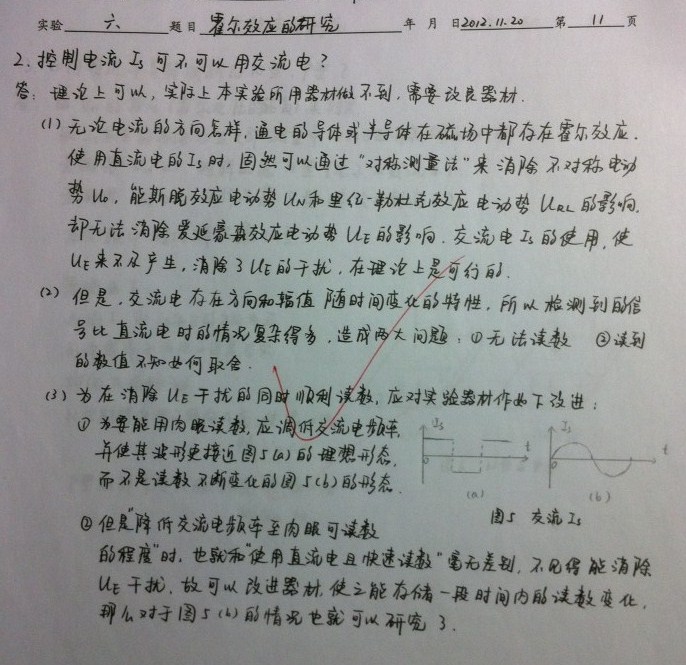 实验 六 题目 霍尔效应的研究 年 月 日2012.11.20 第 11 页
2.控制电流 Is 可不可以用交流电？
答：理论上可以，实际上本实验所用器材做不到，需要改良器材．
(1) 无论电流的方向怎样，通电的导体或半导体在磁场中都存在霍尔效应．
使用直流电的Is时，固然可以通过“对称测量法”来消除不对称电动
势U0，能斯脱效应电动势UN和里纪-勒杜克效应电动势URL的影响，
却无法消除爱廷豪森效应电动势UE的影响．交流电Is的使用，使
UE来不及产生，消除了UE的干扰，在理论上是可行的．
(2) 但是，交流电存在方向和幅值随时间变化的特性，所以检测到的信
号比直流电时的情况复杂得多，造成两大问题：①无法读数 ②读到
的数值不知如何取舍．
(3) 为在消除UE干扰的同时顺利读数，应对实验器材作如下改进：
①为要能用肉眼读数，应调低交流电频率，
并使其波形更接近图5(a)的理想形态，
而不是读数不断变化的图5(b)的形态．
Is t 0 Is t 0
(a) (b)
图5 交流Is
②但是“降低交流电频率至肉眼可读数
的程度”时，也就和“使用直流电且快速读数”毫无差别，不见得能消除
UE干扰．故可以改进器材，使之能存储一段时间内的读数变化，
那么对于图5(b)的情况也就可以研究了．